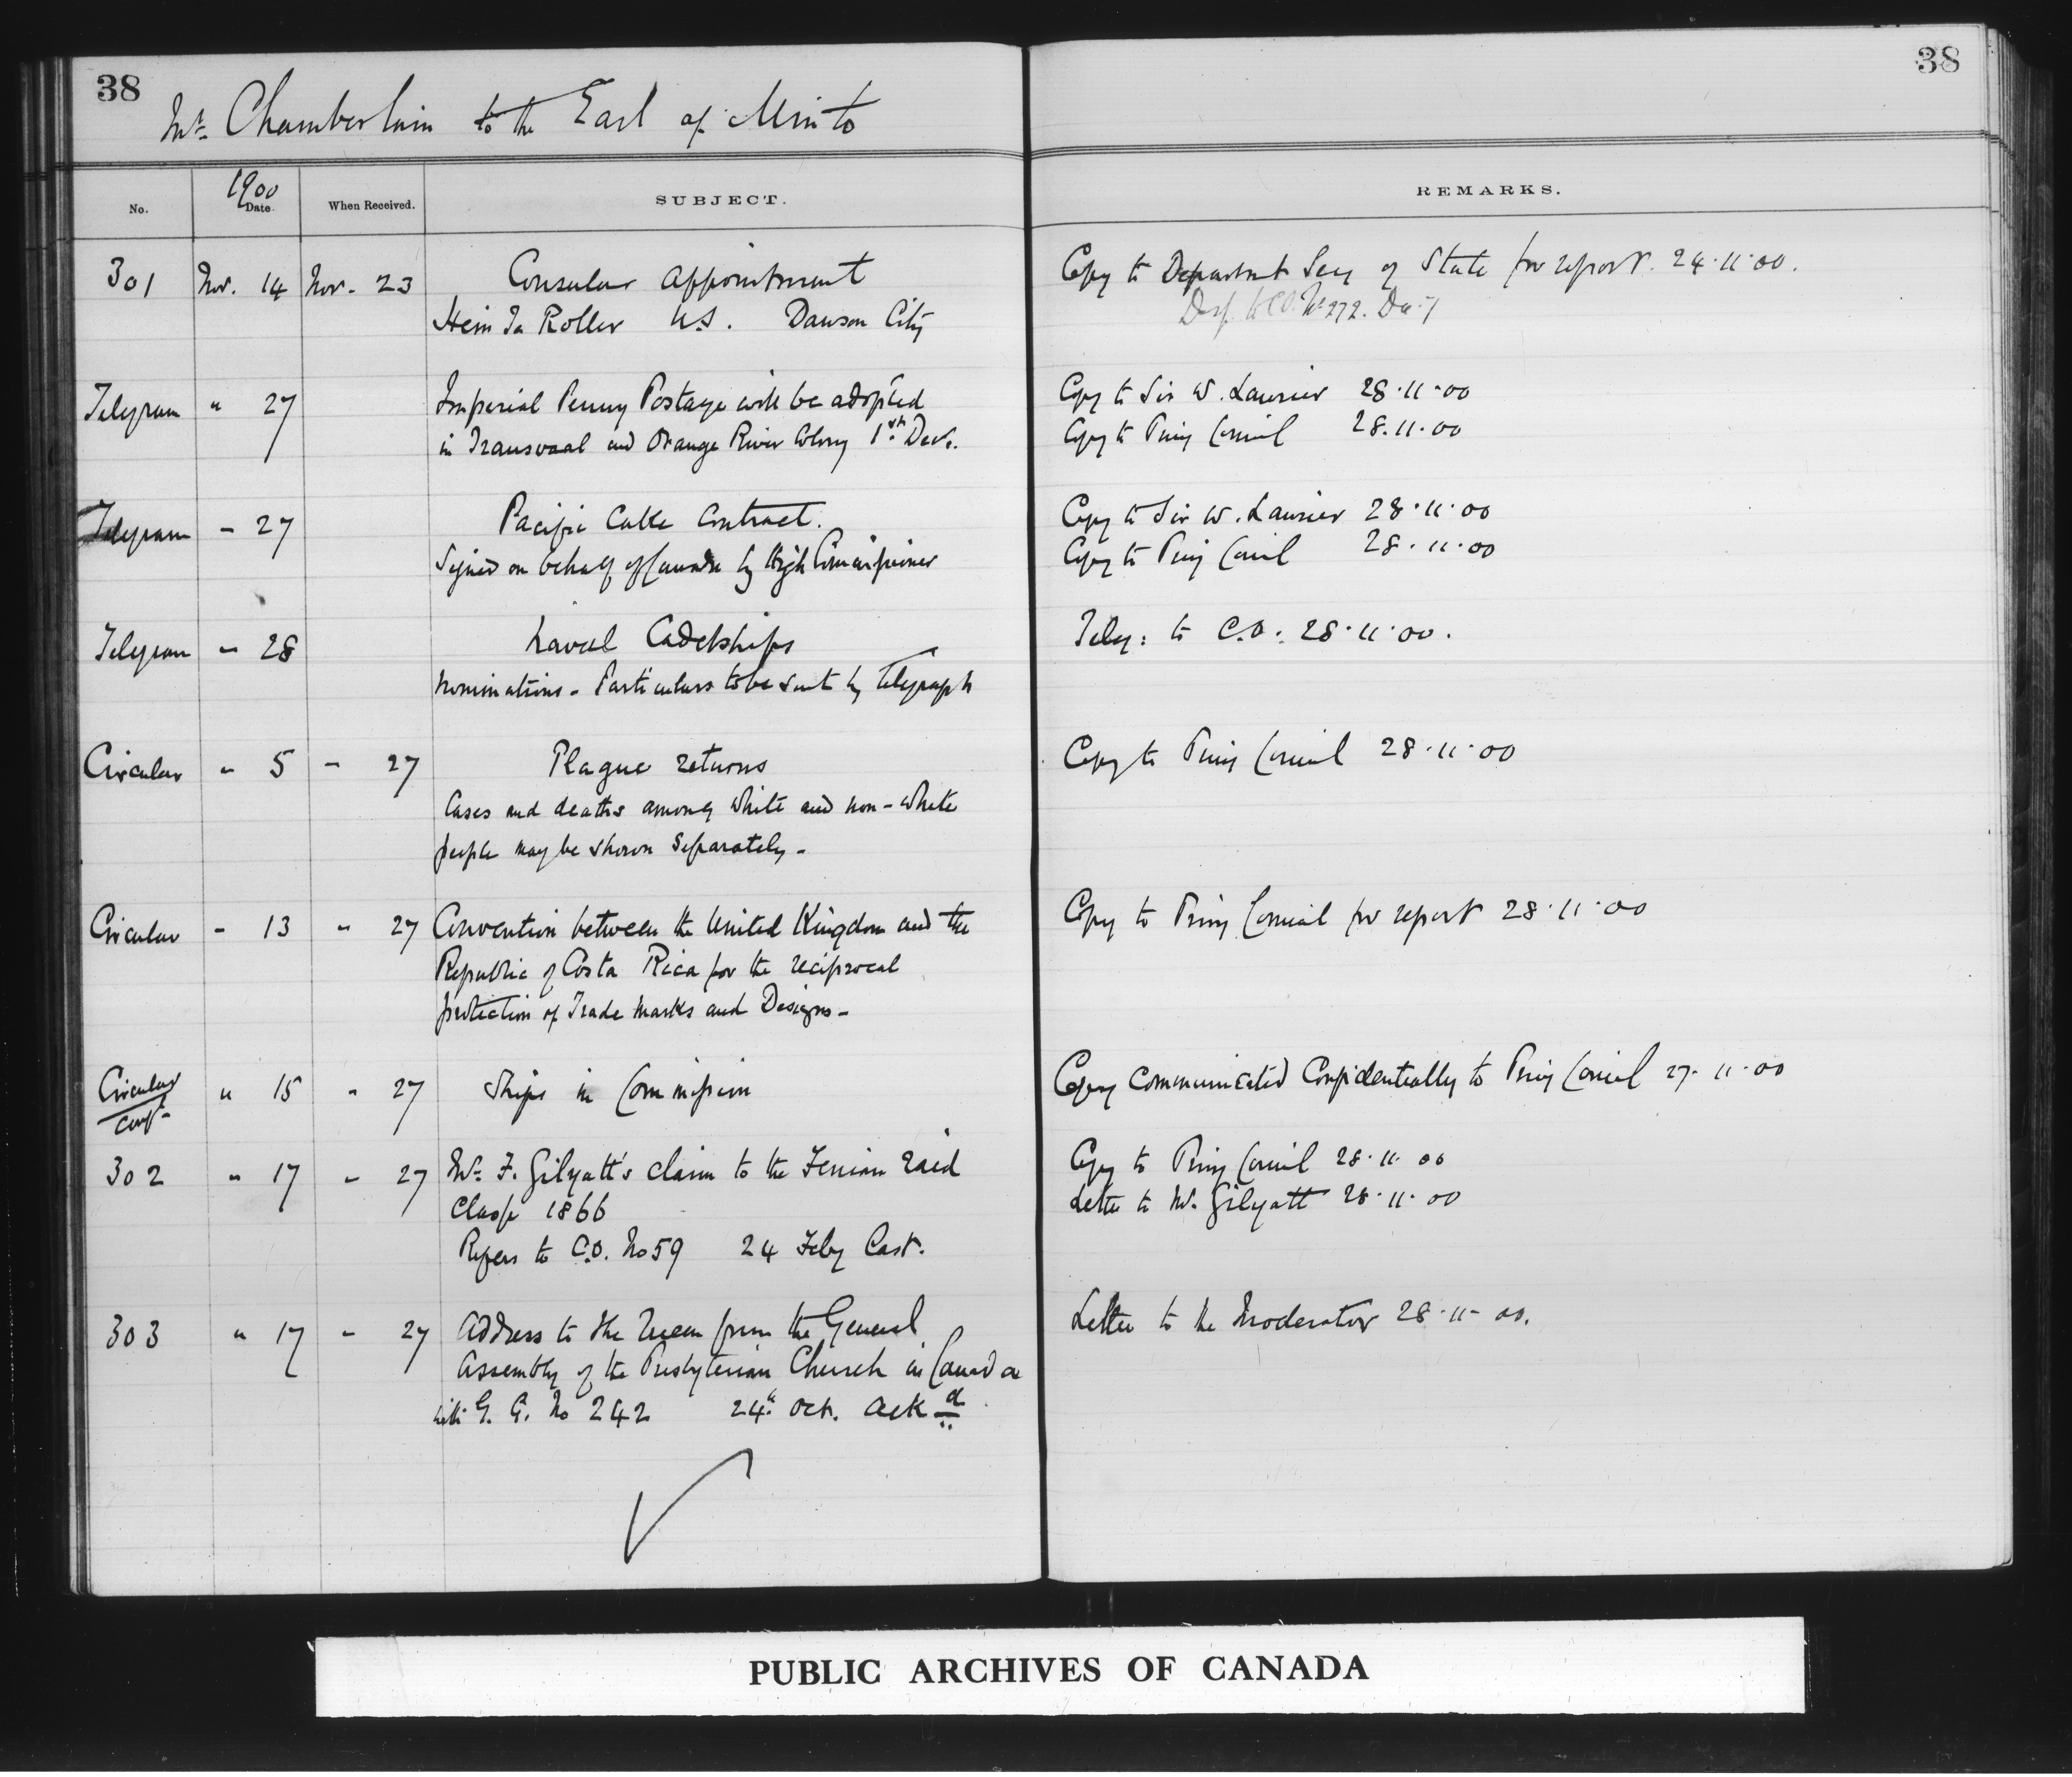 38
38
Mr. Chamberlain to the Earl of Minto
No.
1900
Date
When Received.
SUBJECT.
REMARKS.
301 Nov. 14 Nov. 23 Consular appointment
Copy to Department Secy of State for report. 24.11.00.
Roller U.S. Dawson City
Desp. to C.O. No 272. Dec. 7
Telegram " 27 Imperial Penny Postage will be adopted
Copy to Sir W. Laurier 28.11.00
in Transvaal and Orange River Colony 1st Decr.
Copy to Privy Council 28.11.00
Telegram - 27 Pacific Cable Contract.
Copy to Sir W. Laurier 28.11.00
Signed on behalf of Canada by High Commissioner
Copy to Privy Council 28.11.00
Telegram - 28 Naval Cadetships
Teleg: to C.O. 28.11.00.
Nominations - Particulars to be sent by telegraph
Circular " 5 - 27 Plague returns
Copy to Privy Council 28.11.00
Cases and deaths among white and non-white
people may be shown separately -
Circular - 13 " 27 Convention between the United Kingdom and the
Copy to Privy Council for report 28.11.00
Republic of Costa Rica for the reciprocal
protection of Trade Marks and Designs -
Circular " 15 " 27 Ships in Commission
Conf.
Copy communicated Confidentially to Privy Council 27.11.00
302 " 17 - 27 Mr. F. Gilyatt's claim to the Fenian Raid
Copy to Privy Council 28.11.00
Clasp 1866
Letter to Mr. Gilyatt 28.11.00
Refers to C.O. No 59 24 Feby last.
303 " 17 - 27 Address to the Queen from the General
Letter to the Moderator 28.11.00.
Assembly of the Presbyterian Church in Canada
with G. G. No 242 24th Oct. ackd
PUBLIC ARCHIVES OF CANADA